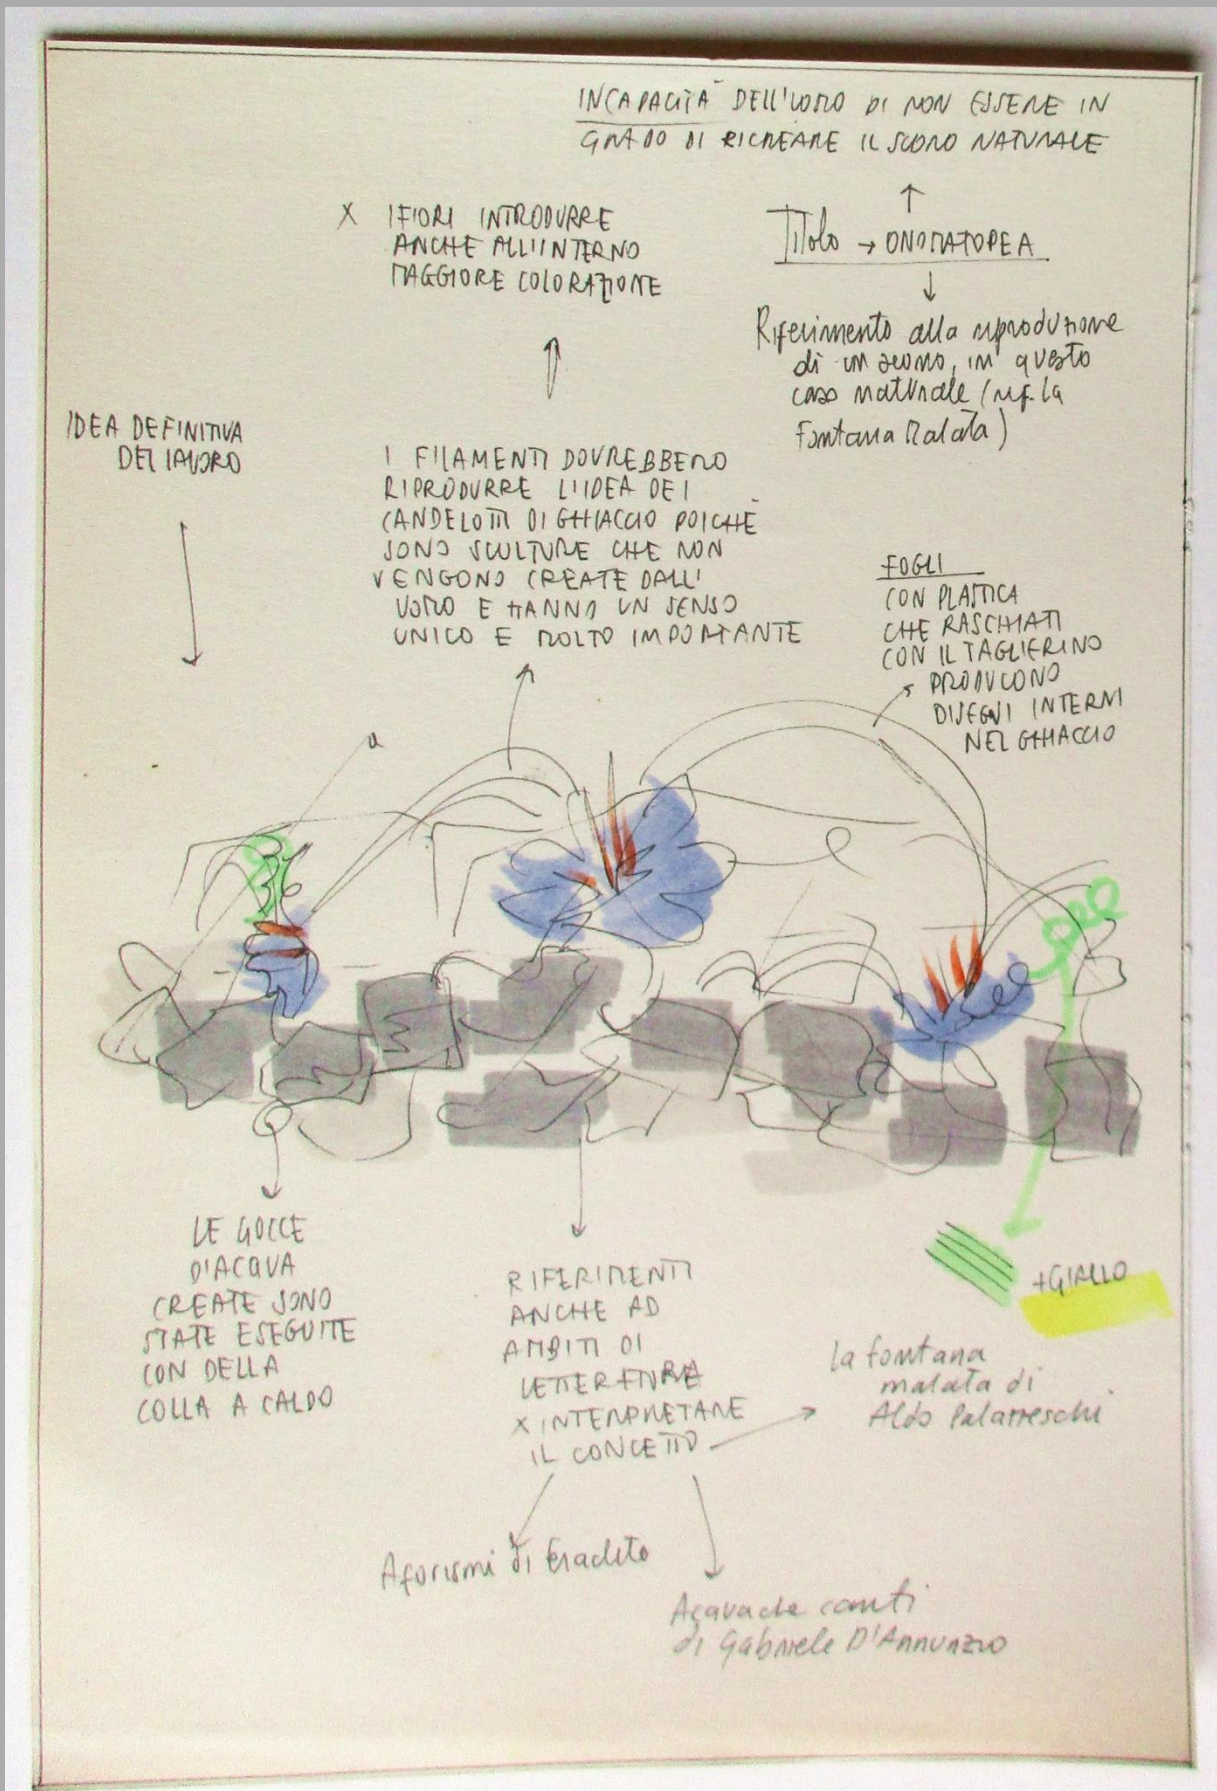 INCAPACITÀ DELL'UOMO DI NON ESSERE IN
GRADO DI RICREARE IL SUONO NATURALE
X I FIORI INTRODURRE
ANCHE ALL'INTERNO
MAGGIORE COLORAZIONE
Titolo → ONOMATOPEA
Riferimento alla riproduzione
di un suono, in questo
caso naturale (rif. la
fontana Malata)
IDEA DEFINITIVA
DEL LAVORO
I FILAMENTI DOVREBBERO
RIPRODURRE L'IDEA DEI
CANDELOTTI DI GHIACCIO POICHÈ
SONO SCULTURE CHE NON
VENGONO CREATE DALL'
UOMO E HANNO UN SENSO
UNICO E MOLTO IMPORTANTE
FOGLI
CON PLASTICA
CHE RASCHIATI
CON IL TAGLIERINO
PRODUCONO
DISEGNI INTERNI
NEL GHIACCIO
LE GOCCE
D'ACQUA
CREATE SONO
STATE ESEGUITE
CON DELLA
COLLA A CALDO
RIFERIMENTI
ANCHE AD
AMBITI DI
LETTERATURA
X INTERPRETARE
IL CONCETTO
+GIALLO
la fontana
malata di
Aldo Palazzeschi
Aforismi di Eraclito
Acqua che canti
di Gabriele D'Annunzio